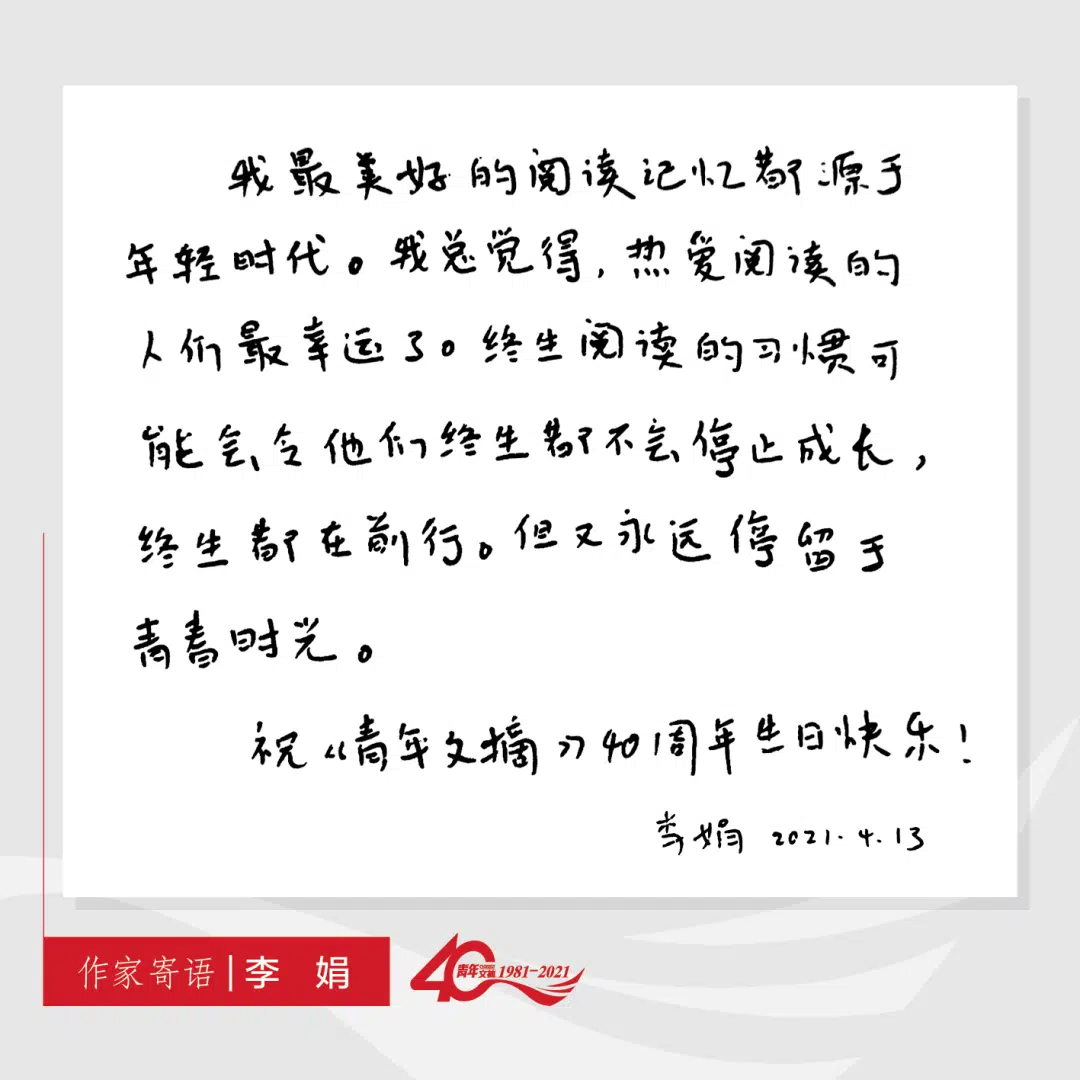 我最美好的阅读记忆都源于
年轻时代。我总觉得，热爱阅读的
人们最幸运了。终生阅读的习惯可
能会令他们终生都不会停止成长，
终生都在前行。但又永远停留于
青春时光。
祝《青年文摘》40周年生日快乐！
李娟 2021.4.13
作家寄语|李 娟
40 青年文摘 1981-2021